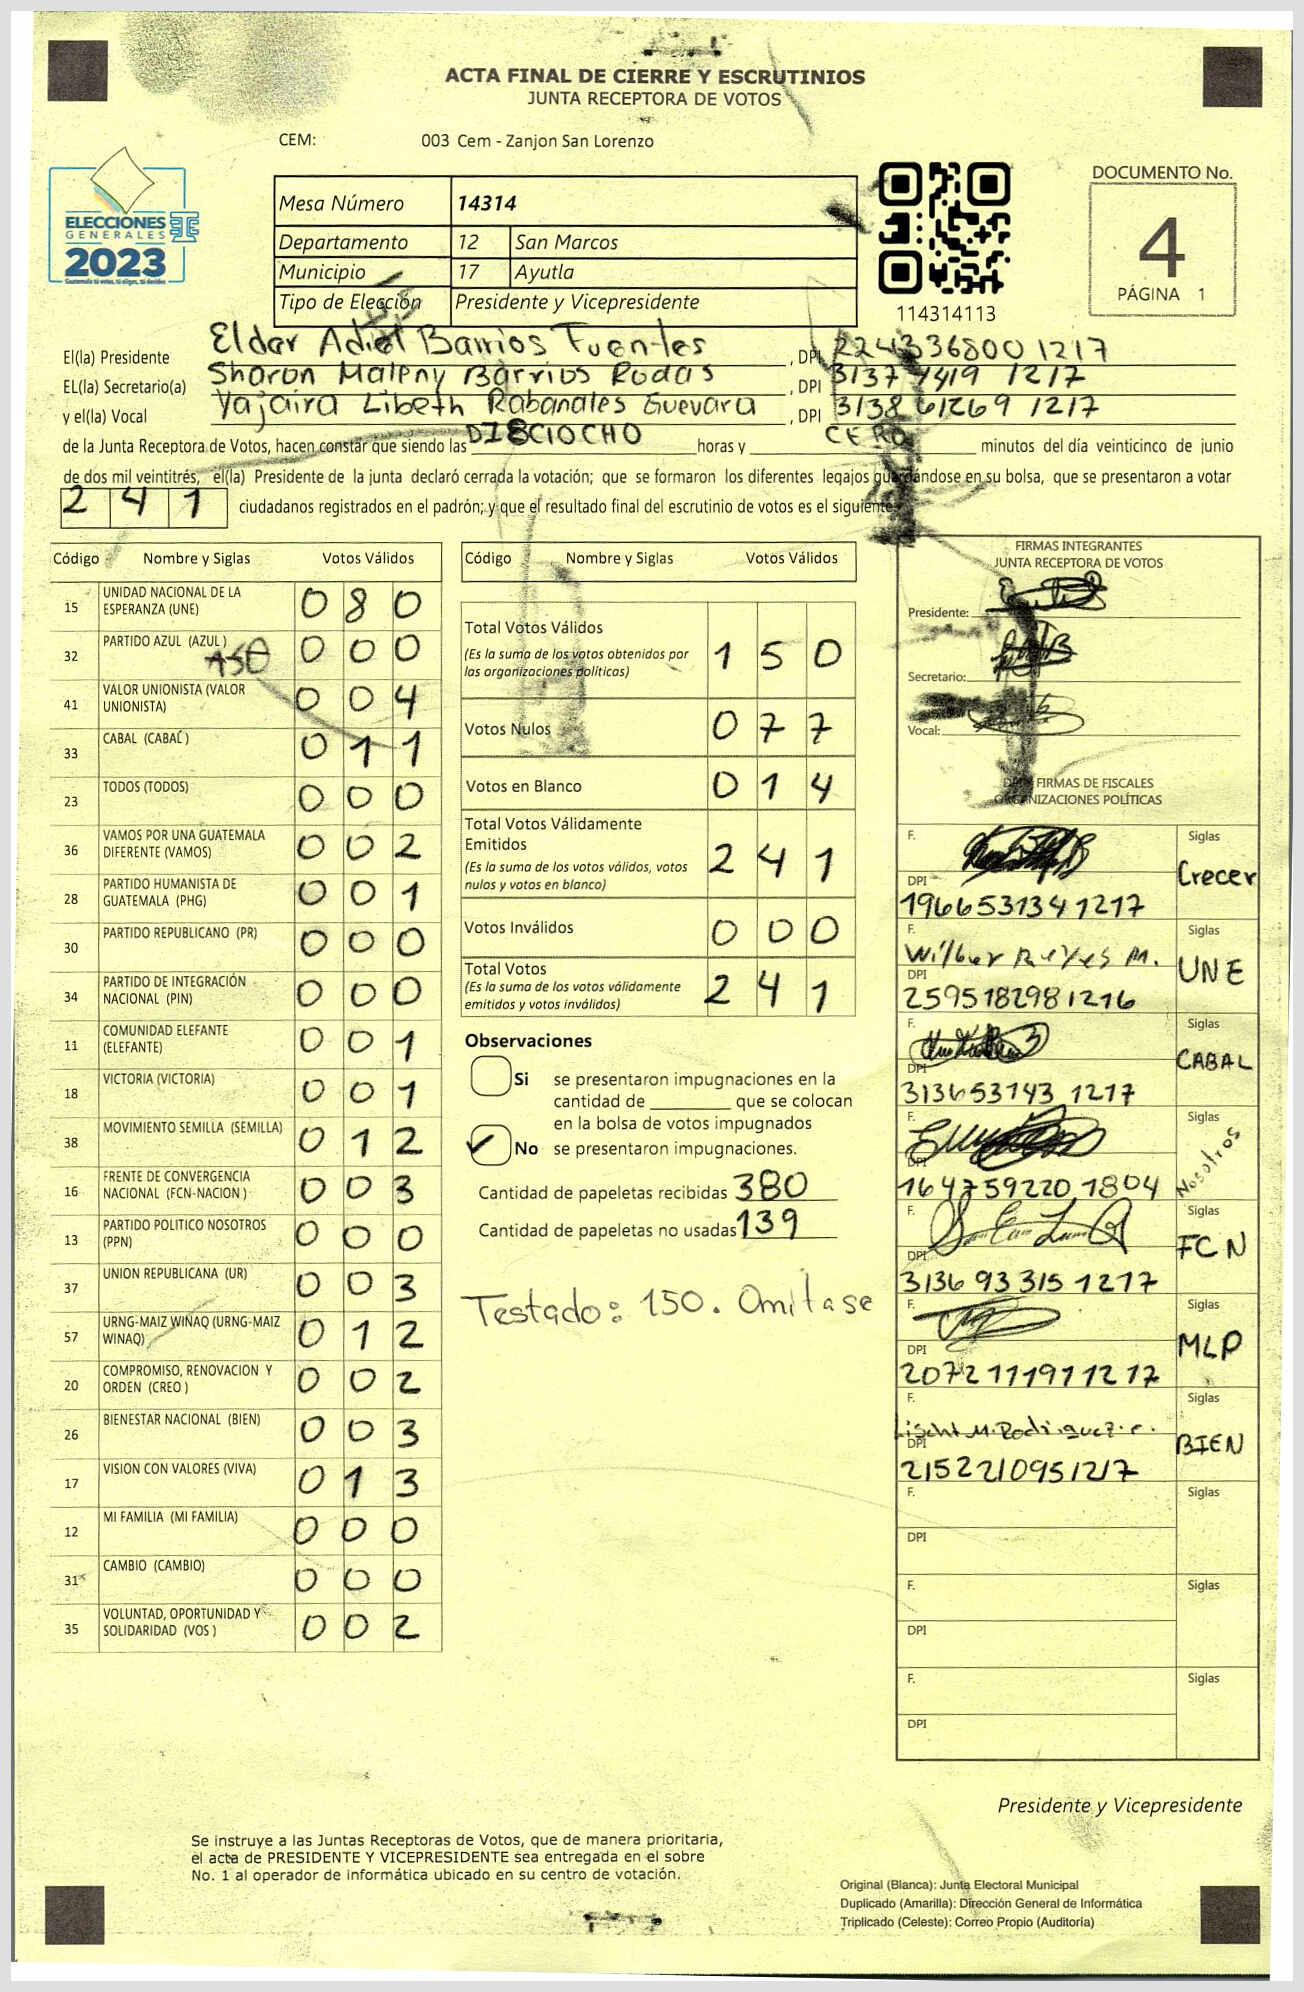 ACTA FINAL DE CIERRE Y ESCRUTINIOS
JUNTA RECEPTORA DE VOTOS
CEM: 003 Cem - Zanjon San Lorenzo
ELECCIONES
GENERALES
2023
Guatemala tú votas, tú eliges, tú decides
Mesa Número 14314
Departamento 12 San Marcos
Municipio 17 Ayutla
Tipo de Elección Presidente y Vicepresidente
114314113
DOCUMENTO No.
4
PÁGINA 1
El(la) Presidente Eldar Adiel Barrios Fuentes, DPI 2243368001217
EL(la) Secretario(a) Sharon Maleny Barrios Rodas, DPI 3137 4419 1217
y el(la) Vocal Yajaira Libeth Rabanales Guevara, DPI 3138 61269 1217
de la Junta Receptora de Votos, hacen constar que siendo las DIECIOCHO horas y CERO minutos del día veinticinco de junio
de dos mil veintitrés, el(la) Presidente de la junta declaró cerrada la votación; que se formaron los diferentes legajos guardándose en su bolsa, que se presentaron a votar
2 4 1 ciudadanos registrados en el padrón; y que el resultado final del escrutinio de votos es el siguiente:
Código Nombre y Siglas Votos Válidos
15 UNIDAD NACIONAL DE LA ESPERANZA (UNE) 0 8 0
32 PARTIDO AZUL (AZUL) 150 0 0 0
41 VALOR UNIONISTA (VALOR UNIONISTA) 0 0 4
33 CABAL (CABAL) 0 1 1
23 TODOS (TODOS) 0 0 0
36 VAMOS POR UNA GUATEMALA DIFERENTE (VAMOS) 0 0 2
28 PARTIDO HUMANISTA DE GUATEMALA (PHG) 0 0 1
30 PARTIDO REPUBLICANO (PR) 0 0 0
34 PARTIDO DE INTEGRACIÓN NACIONAL (PIN) 0 0 0
11 COMUNIDAD ELEFANTE (ELEFANTE) 0 0 1
18 VICTORIA (VICTORIA) 0 0 1
38 MOVIMIENTO SEMILLA (SEMILLA) 0 1 2
16 FRENTE DE CONVERGENCIA NACIONAL (FCN-NACION) 0 0 3
13 PARTIDO POLITICO NOSOTROS (PPN) 0 0 0
37 UNION REPUBLICANA (UR) 0 0 3
57 URNG-MAIZ WINAQ (URNG-MAIZ WINAQ) 0 1 2
20 COMPROMISO, RENOVACION Y ORDEN (CREO) 0 0 2
26 BIENESTAR NACIONAL (BIEN) 0 0 3
17 VISION CON VALORES (VIVA) 0 1 3
12 MI FAMILIA (MI FAMILIA) 0 0 0
31 CAMBIO (CAMBIO) 0 0 0
35 VOLUNTAD, OPORTUNIDAD Y SOLIDARIDAD (VOS) 0 0 2
Código Nombre y Siglas Votos Válidos
Total Votos Válidos 1 5 0
(Es la suma de los votos obtenidos por
las organizaciones políticas)
Votos Nulos 0 7 7
Votos en Blanco 0 1 4
Total Votos Válidamente
Emitidos 2 4 1
(Es la suma de los votos válidos, votos
nulos y votos en blanco)
Votos Inválidos 0 0 0
Total Votos 2 4 1
(Es la suma de los votos válidamente
emitidos y votos inválidos)
Observaciones
Si se presentaron impugnaciones en la
cantidad de ________ que se colocan
en la bolsa de votos impugnados
No se presentaron impugnaciones.
Cantidad de papeletas recibidas 380
Cantidad de papeletas no usadas 139
Testado: 150. Omitase
FIRMAS INTEGRANTES
JUNTA RECEPTORA DE VOTOS
Presidente:
Secretario:
Vocal:
DPI Y FIRMAS DE FISCALES
ORGANIZACIONES POLÍTICAS
F. Siglas
Crecer
DPI
1966531341217
F. Siglas
Wilber Reyes M.
UNE
DPI
2595182981216
F. Siglas
CABAL
DPI
313653143 1217
F. Siglas
Nosotros
DPI
164759220 1804
F. Siglas
FCN
DPI
3136 93 315 1217
F. Siglas
MLP
DPI
2072111911217
F. Siglas
M. Rodriguez
BIEN
DPI
2152210951217
F. Siglas
DPI
F. Siglas
DPI
F. Siglas
DPI
Presidente y Vicepresidente
Se instruye a las Juntas Receptoras de Votos, que de manera prioritaria,
el acta de PRESIDENTE Y VICEPRESIDENTE sea entregada en el sobre
No. 1 al operador de informática ubicado en su centro de votación.
Original (Blanca): Junta Electoral Municipal
Duplicado (Amarilla): Dirección General de Informática
Triplicado (Celeste): Correo Propio (Auditoría)